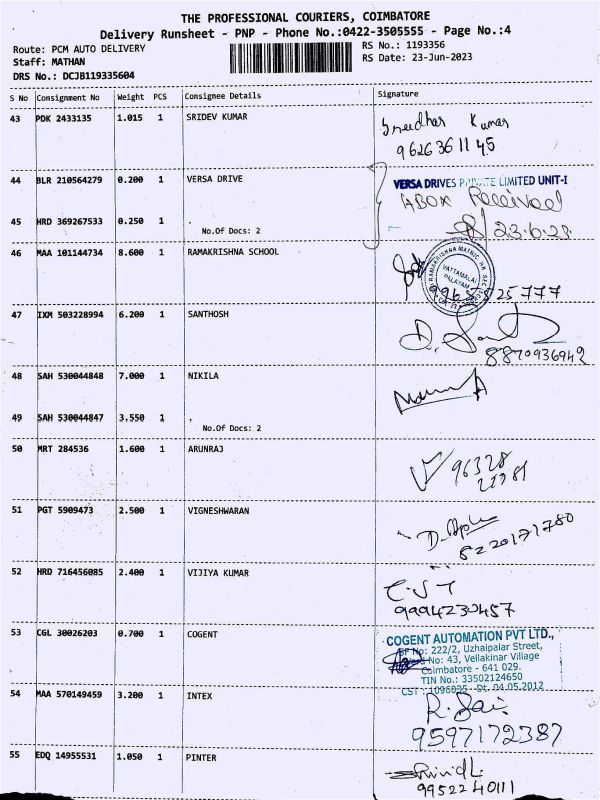 THE PROFESSIONAL COURIERS, COIMBATORE
Delivery Runsheet - PNP - Phone No.:0422-3505555 - Page No.:4
Route: PCM AUTO DELIVERY
RS No.: 1193356
Staff: MATHAN
RS Date: 23-Jun-2023
DRS No.: DCJB119335604
S No Consignment No Weight PCS Consignee Details Signature
43 PDK 2433135 1.015 1 SRIDEV KUMAR
Sreedhar Kumar
9626361145
44 BLR 210564279 0.200 1 VERSA DRIVE
VERSA DRIVES PRIVATE LIMITED UNIT-I
ABOX Received
45 HRD 369267533 0.250 1 .
No.Of Docs: 2
23.6.23
46 MAA 101144734 8.600 1 RAMAKRISHNA SCHOOL
RAMAKRISHNA MATRIC HR SEC
VATTAMALAI
PALAYAM
25777
47 IXM 503228994 6.200 1 SANTHOSH
8870936942
48 SAH 530044848 7.000 1 NIKILA
49 SAH 530044847 3.550 1 .
No.Of Docs: 2
50 MRT 284536 1.600 1 ARUNRAJ
96328
51 PGT 5909473 2.500 1 VIGNESHWARAN
8220171780
52 HRD 716456085 2.400 1 VIJIYA KUMAR
9994230457
53 CGL 30026203 0.700 1 COGENT
COGENT AUTOMATION PVT LTD.,
SF No: 222/2, Uzhaipalar Street,
No: 43, Vellakinar Village
Coimbatore - 641 029.
TIN No.: 33502124650
CST : 1096035 Dt. 04.05.2012
54 MAA 570149459 3.200 1 INTEX
R. Sai
9597172387
55 EDQ 14955531 1.050 1 PINTER
9952240111